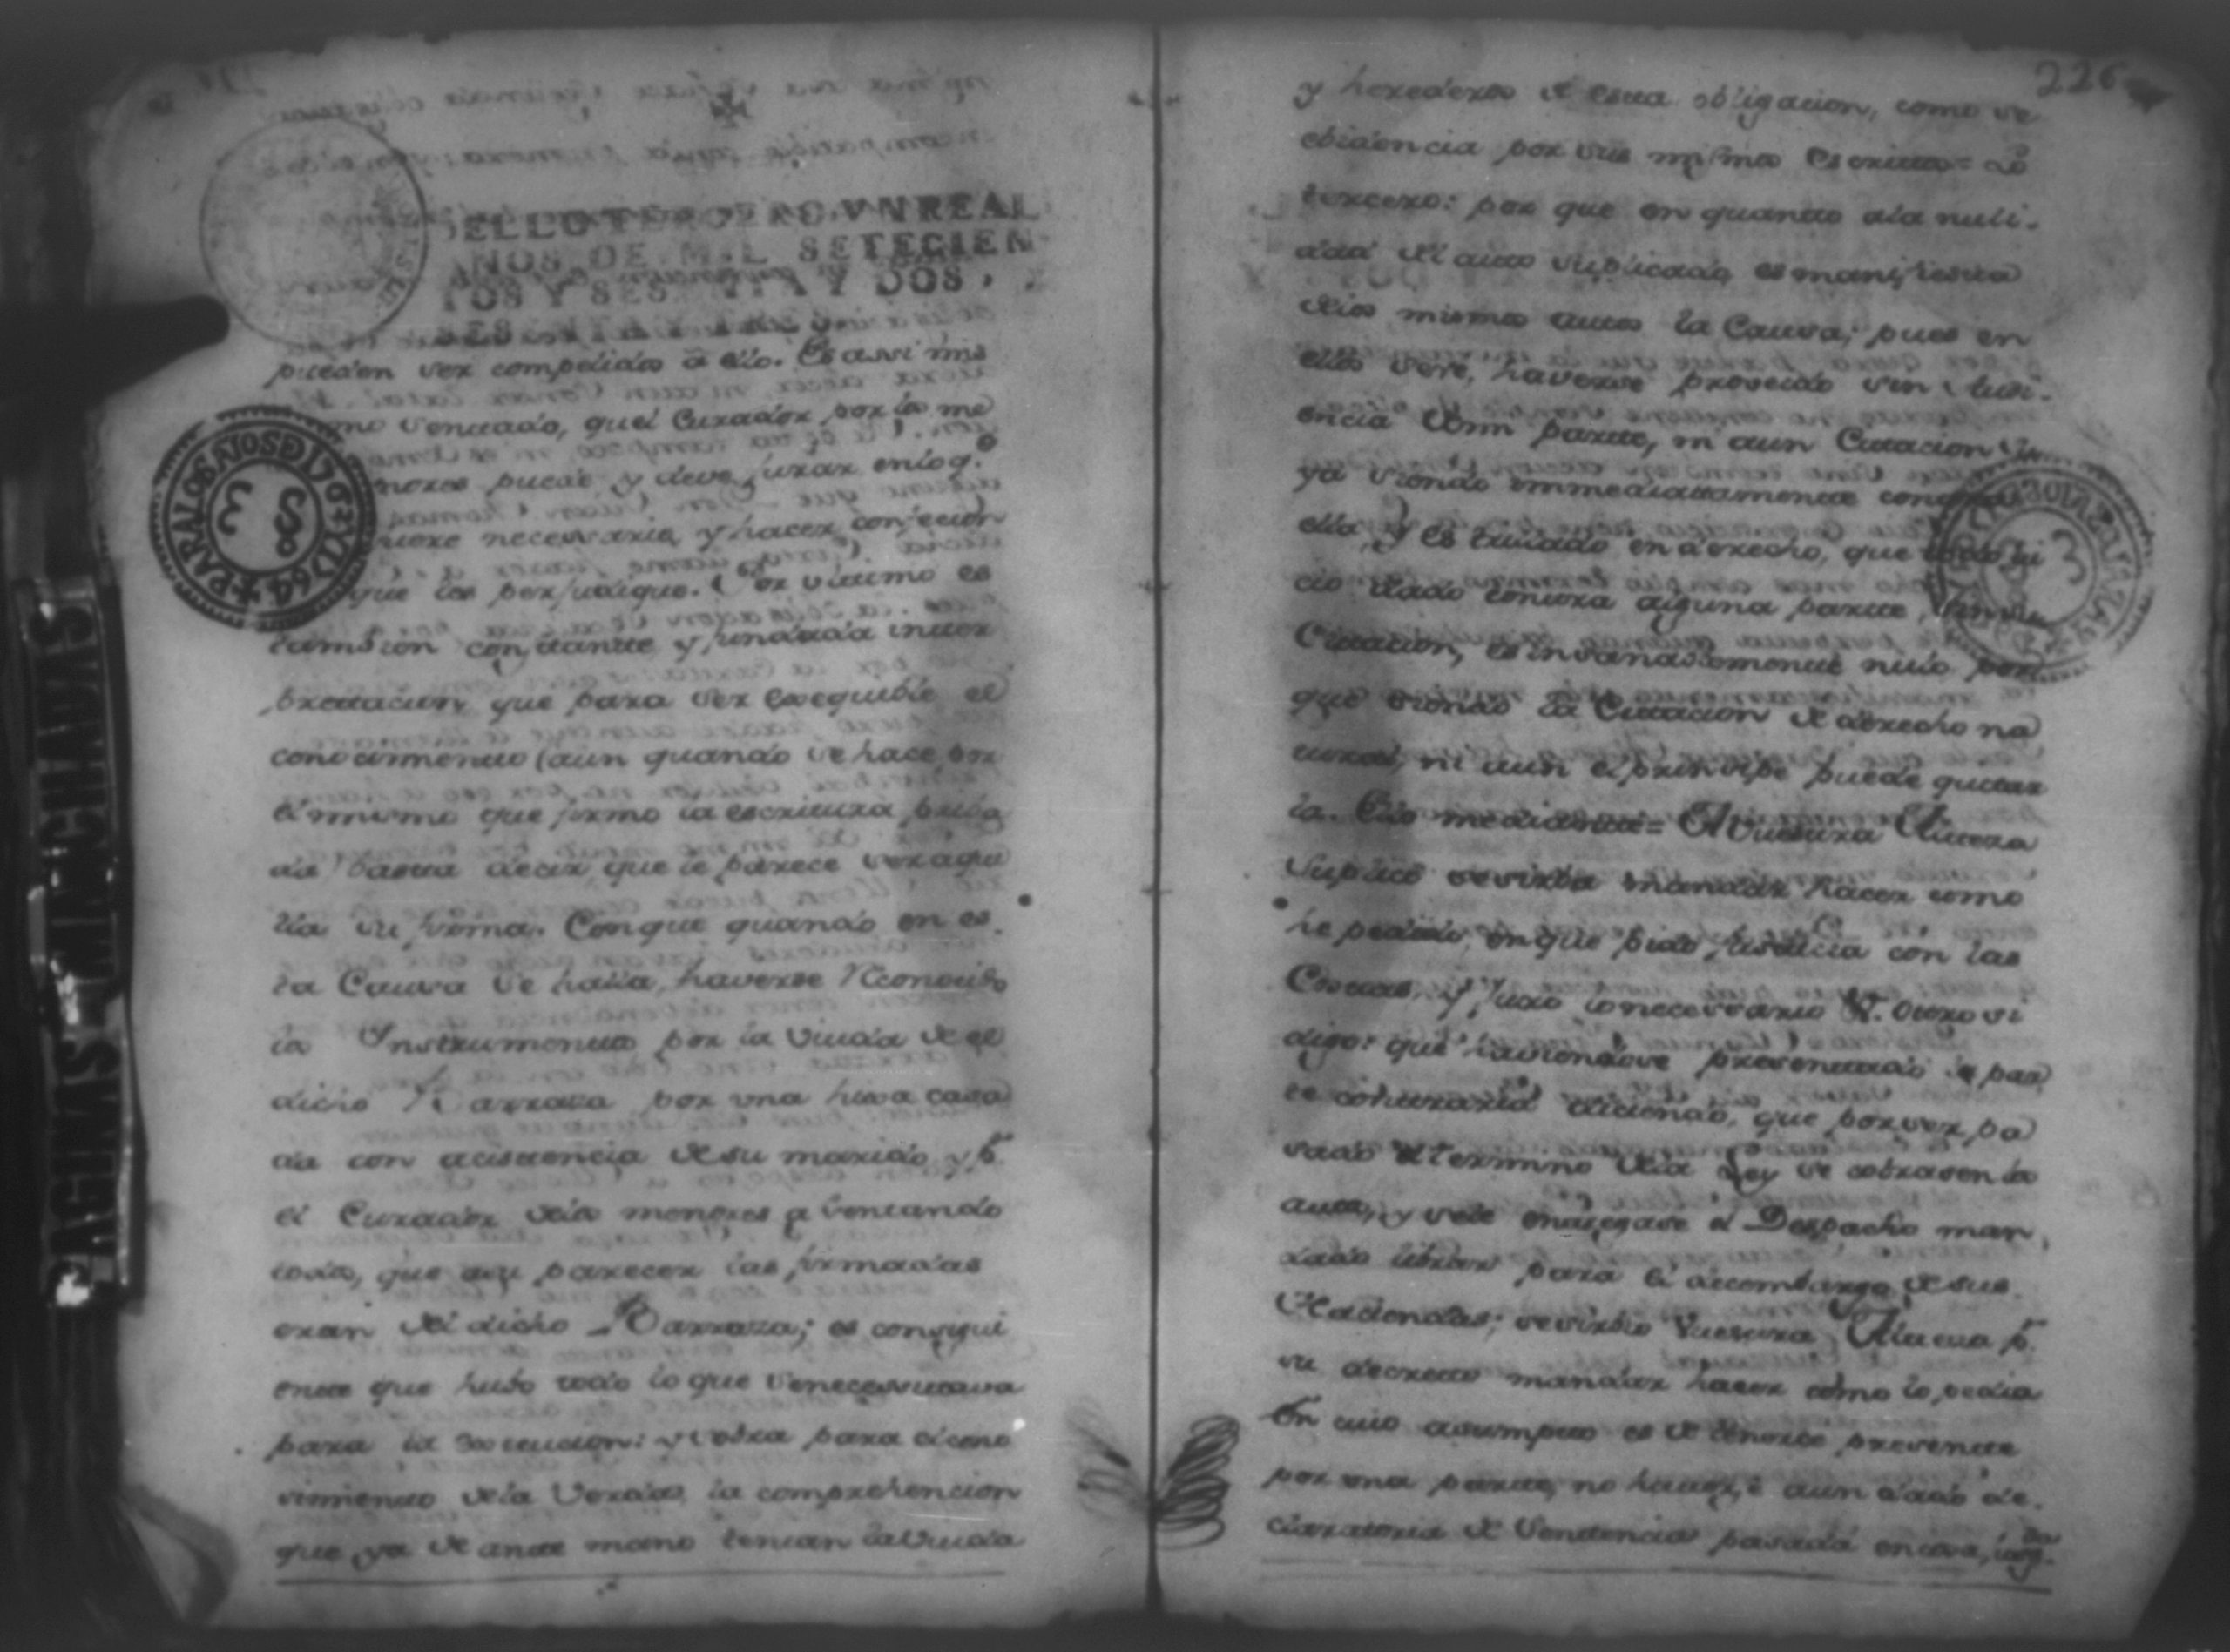 SELLO TERCERO, VN REAL
AÑOS DE MIL SETECIEN
TOS Y SESENTA Y DOS,
PARA LOS AÑOS D 1763 Y 1764
pueden ser compelidos a ello. Es assi mis
mo sentado, que el Curador por los me
nores puede y deve jurar en lo q.
fuere necessario, y hacer confecion
que los perjudique. Por ultimo es
tambien constante y fundada inter
pretacion que para ser exequible el
conocimiento (aun quando se hace por
el mismo que firmo la escritura priva
da) basta decir, que le parece ser aque
lla su firma. Con que quando en es
ta Causa se halla, haverse Reconocido
los Instrumentos por la Viuda de el
dicho Barraza por una hixa casa
da con acistencia de su marido, y p.r
el Curador de los menores asentando
todos, que a su parecer las firmadas
eran del dicho Barraza; es consigui
ente que hubo todo lo que se necessitava
para la execucion: y sobra para el cono
simiento de la Verdad, la comprehencion
que ya de ante mano tenian la Viuda
226
y herederos de esta obligacion, como se
ebidencia por sus mismos escritos = Lo
tercero: por que en quanto a la nuli-
dad del auto suplicado, es manifiesta
de los mismos autos la Causa; pues en
ellos se ve, haverse proveido sin Audi-
encia de mi parte, ni aun Citacion
ya siendo immediatamente contra
ella, y es sentado en derecho, que todo jui
cio dado contra alguna parte, sin su
Citacion, es insanablemente nulo por
que siendo la Citacion de derecho na
tural, ni aun el principe puede quitar
la. Esto mediante = A Vuestra Alteza
Suplico se sirba mandar hacer como
he pedido, en que pido justicia con las
Costas, y Juro lo necessario &. Otro si
digo: que haviendose presentado la par
te contraria diciendo, que por ser pa
sado el termino de la Ley se cobrasen los
autos, y se le entregase el Despacho man
dado librar para el desembargo de sus
Haciendas; se sirbio Vuestra Alteza p.r
su decreto mandar hacer como lo pedia
En cuio asumpto es de tenerse presente
por una parte, no haver, aun dado de-
claratoria de Sentencia pasada en cosa, juzg.da